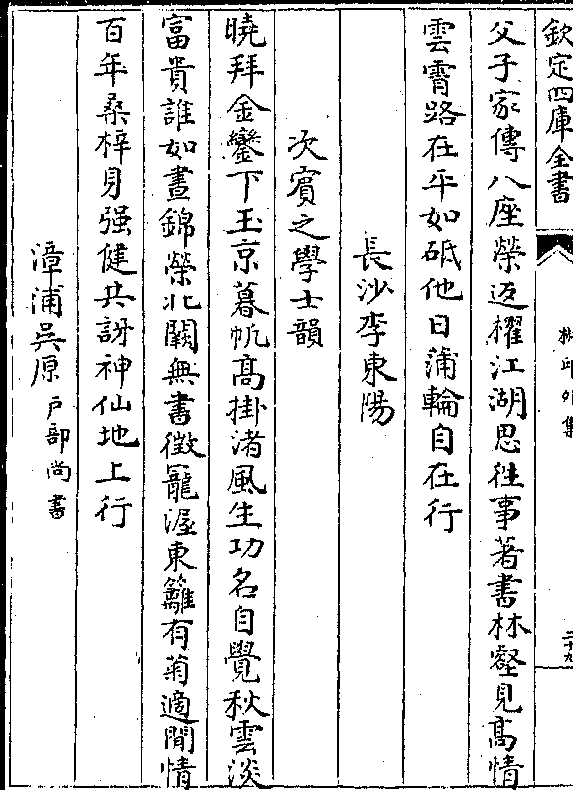 欽定四庫全書
林邱外集
二十九
父子家傳八座榮返櫂江湖思往事著書林壑見髙情
雲霄路在平如砥他日蒲輪自在行
長沙李東陽
次賓之學士韻
曉拜金鑾下玉京暮帆髙掛渚風生功名自覺秋雲淡
富貴誰如晝錦榮北闕無書徴寵渥東籬有菊適閒情
百年桑梓身强健共訝神仙地上行
漳浦吳原戶部尚書